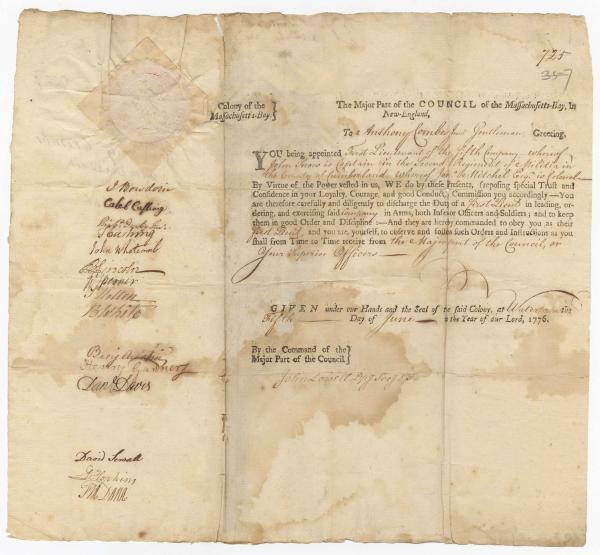 725
357
Colony of the
Massachusetts-Bay.
The Major Part of the COUNCIL of the Massachusetts-Bay, in
New-England,
To Anthony Combs Gentleman Greeting,
YOU being appointed First Lieutenant of the Fifth Company whereof
John Snow is Captain in the Second Regiment of Militia in
the County of Cumberland whereof Jona. Mitchel Esqr. is Colonel
By Virtue of the Power vested in us, WE do by these Presents, (reposing special Trust and
Confidence in your Loyalty, Courage, and good Conduct,) Commission you accordingly —You
are therefore carefully and diligently to discharge the Duty of a First Lieut in leading, or-
dering, and exercising said Company in Arms, both Inferior Officers and Soldiers; and to keep
them in good Order and Discipline :—And they are hereby commanded to obey you as their
First Lieut, and you are yourself, to observe and follow such Orders and Instructions as you
shall from Time to Time receive from the Major part of the Council, or
Your Superior Officers
GIVEN under our Hands and the Seal of the said Colony, at Watertown the
Fifth Day of June in the Year of our Lord, 1776.
By the Command of the
Major Part of the Council
John Lowell Dpy Secy
J Bowdoin
Caleb Cushing
T Cushing
John Whetcomb
B Lincoln
W Spooner
B White
Henry Gardner
Danl Davis
David Sewall
D Hopkins
Fra Dana